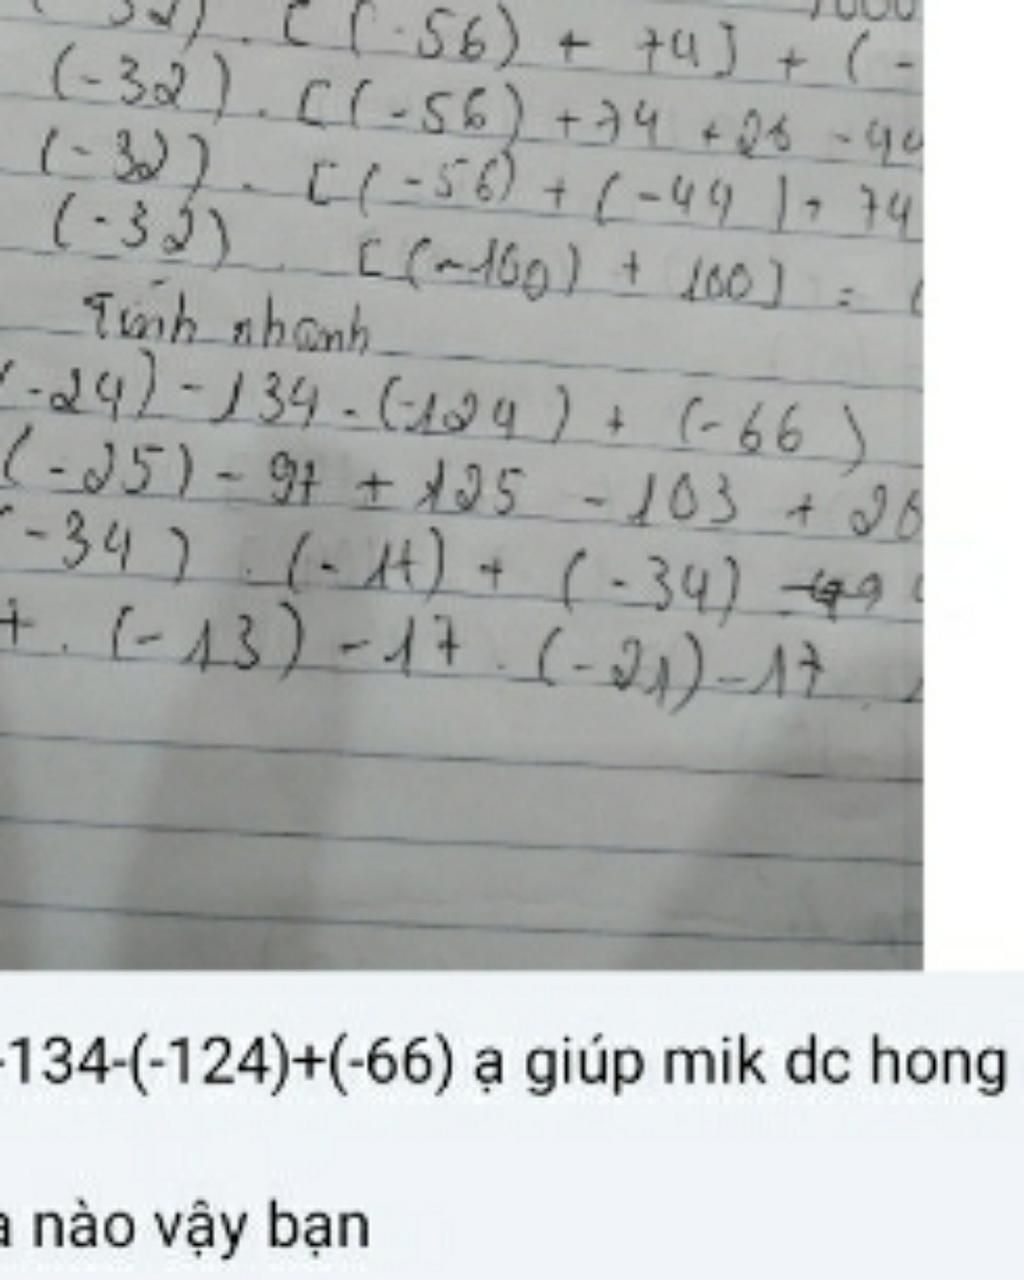 [(-56) + 74] + (-
(-32) . [(-56) + 74 + 26 - 44
(-32) . [(-56) + (-44) + 74
(-32) . [(-100) + 100] = (
Tính nhanh
(-24) - 134 - (-124) + (-66)
(-25) - 97 + 125 - 103 + 26
-34) . (-17) + (-34)
7 . (-13) - 17 . (-21) - 17 .
-134-(-124)+(-66) ạ giúp mik dc hong
nào vậy bạn